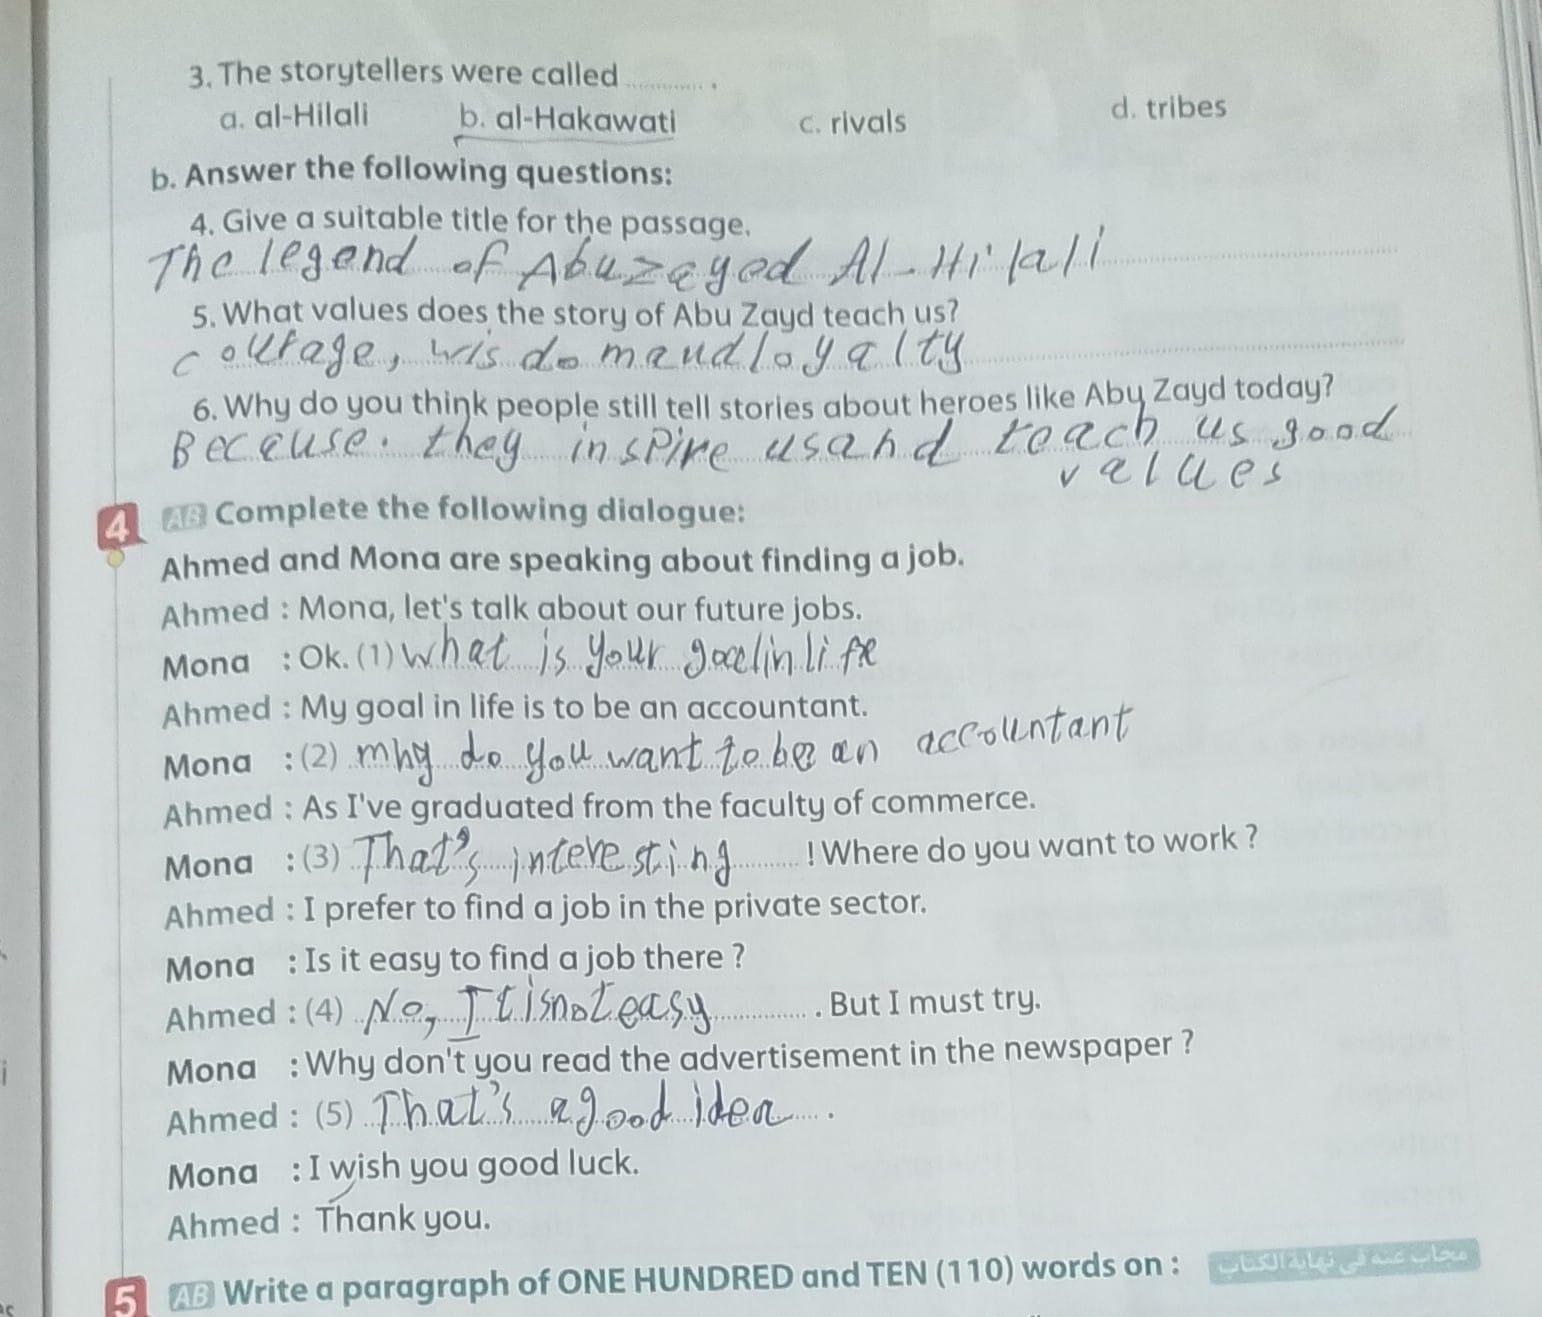 3. The storytellers were called ............ .
a. al-Hilali b. al-Hakawati c. rivals d. tribes
b. Answer the following questions:
4. Give a suitable title for the passage.
The legend of Abuzeyed Al-Hilali
5. What values does the story of Abu Zayd teach us?
courage, wisdom and loyalty
6. Why do you think people still tell stories about heroes like Abu Zayd today?
Because. they inspire us and teach us good
values
4 AB Complete the following dialogue:
Ahmed and Mona are speaking about finding a job.
Ahmed : Mona, let's talk about our future jobs.
Mona : Ok. (1) What is your goal in life
Ahmed : My goal in life is to be an accountant.
Mona : (2) Why do you want to be an accountant
Ahmed : As I've graduated from the faculty of commerce.
Mona : (3) That's interesting ! Where do you want to work ?
Ahmed : I prefer to find a job in the private sector.
Mona : Is it easy to find a job there ?
Ahmed : (4) No, It is not easy . But I must try.
Mona : Why don't you read the advertisement in the newspaper ?
Ahmed : (5) That's a good idea .
Mona : I wish you good luck.
Ahmed : Thank you.
5 AB Write a paragraph of ONE HUNDRED and TEN (110) words on : مجاب عنه في نهاية الكتاب